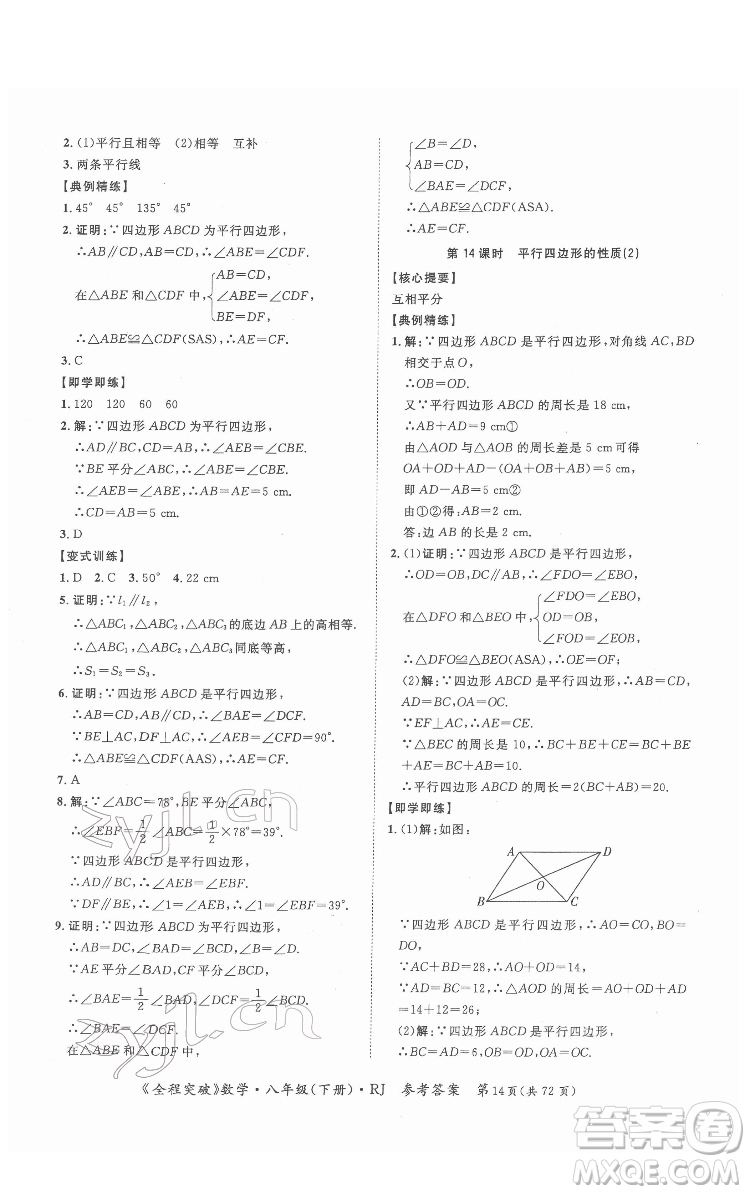 2. (1)平行且相等 (2)相等 互补
3. 两条平行线
【典例精练】
1. 45° 45° 135° 45°
2. 证明:∵四边形 ABCD 为平行四边形,
∴AB∥CD,AB=CD,∴∠ABE=∠CDF.
在△ABE 和△CDF 中,
AB=CD,
∠ABE=∠CDF,
BE=DF,
∴△ABE≌△CDF(SAS),∴AE=CF.
3. C
【即学即练】
1. 120 120 60 60
2. 解:∵四边形 ABCD 为平行四边形,
∴AD∥BC,AB=CD,∴∠AEB=∠CBE.
∵BE 平分∠ABC,∴∠ABE=∠CBE.
∴∠ABE=∠AEB,∴AB=AE=5 cm.
∴CD=AB=5 cm.
3. D
【变式训练】
1. D 2. C 3. 50° 4. 22 cm
5. 证明:∵l₁∥l₂,
∴△ABC₁,△ABC₂,△ABC₃的底边 AB 上的高相等.
∴△ABC₁,△ABC₂,△ABC₃同底等高,
∴S₁=S₂=S₃.
6. 证明:∵四边形 ABCD 是平行四边形,
∴AB=CD,AB∥CD,∴∠BAE=∠DCF.
∵BE⊥AC,DF⊥AC,∴∠AEB=∠CFD=90°.
∴△ABE≌△CDF(AAS),∴AE=CF.
7. A
8. 解:∵∠ABC=78°,BE 平分∠ABC,
∴∠EBF=1/2∠ABC=1/2×78°=39°.
∵四边形 ABCD 是平行四边形,
∴AD∥BC,∴∠AEB=∠EBF=39°.
∵DF∥BE,∴∠1=∠AEB=39°.
9. 证明:∵四边形 ABCD 是平行四边形,
∴AB=DC,∠BAD=∠BCD,AB∥DC.
∵AE 平分∠BAD,CF 平分∠BCD,
∴∠BAE=1/2∠BAD,∠DCF=1/2∠BCD.
∴∠BAE=∠DCF.
在△ABE 和△CDF 中,
∠B=∠D,
AB=CD,
∠BAE=∠DCF,
∴△ABE≌△CDF(ASA).
∴AE=CF.
第 14 课时 平行四边形的性质(2)
【核心提要】
互相平分
【典例精练】
1. 解:∵四边形 ABCD 是平行四边形,对角线 AC,BD
相交于点 O,
∴OB=OD.
又∵平行四边形 ABCD 的周长是 18 cm,
∴AB+AD=9 cm①
由△AOD 与△AOB 的周长差是 5 cm 可得
OA+OD+AD-OA-OB-AB=5 cm,
即 AD-AB=5 cm②
由①②得:AB=2 cm.
答:边 AB 的长是 2 cm.
2. (1)证明:∵四边形 ABCD 是平行四边形,
∴OD=OB,AD∥BC,∴∠FDO=∠EBO.
在△DFO 和△BEO 中,
∠FDO=∠EBO,
OD=OB,
∠FOD=∠EOB,
∴△DFO≌△BEO(ASA).
(2)解:∵四边形 ABCD 是平行四边形,∴AB=CD,
AD=BC,OA=OC.
∵EF⊥AC,∴AE=CE.
∵△BEC 的周长是 10,∴BC+BE+CE=BC+BE
+AE=BC+AB=10.
∴平行四边形 ABCD 的周长=2(BC+AB)=20.
【即学即练】
1. (1)解:如图:
A
D
O
B
C
∵四边形 ABCD 是平行四边形,∴AO=CO,BO=
DO,
∵AC+BD=28,∴AO+OD=14,
∵AD=12,∴△AOD 的周长=AO+OD+AD
=14+12=26;
(2)解:∵四边形 ABCD 是平行四边形,
《全程突破》数学·八年级(下册)·RJ 参考答案 第14页(共72页)
zyjl.cn
zyjl.cn
答案圈
MXQE.COM